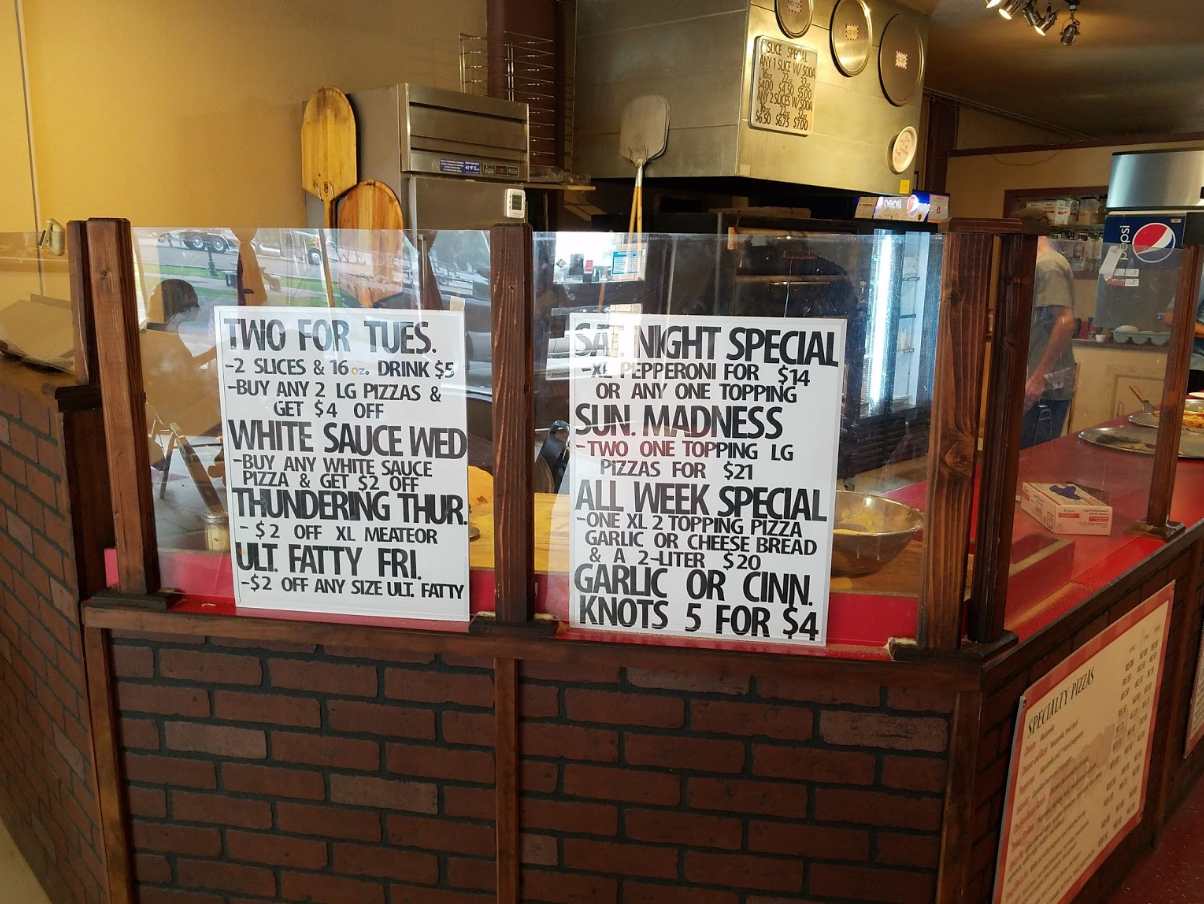 SLICE SPECIAL
ANY 1 SLICE W/ SODA
16oz 22oz 32oz
$4.00 $4.50 $5.00
ANY 2 SLICES W/ SODA
16oz 22oz 32oz
$6.50 $6.75 $7.00
pepsi
pepsi
TWO FOR TUES.
-2 SLICES & 16 oz. DRINK $5
-BUY ANY 2 LG PIZZAS &
GET $4 OFF
WHITE SAUCE WED
-BUY ANY WHITE SAUCE
PIZZA & GET $2 OFF
THUNDERING THUR.
- $2 OFF XL MEATEOR
ULT. FATTY FRI.
-$2 OFF ANY SIZE ULT. FATTY
SAT. NIGHT SPECIAL
-XL PEPPERONI FOR $14
OR ANY ONE TOPPING
SUN. MADNESS
-TWO ONE TOPPING LG
PIZZAS FOR $21
ALL WEEK SPECIAL
-ONE XL 2 TOPPING PIZZA
GARLIC OR CHEESE BREAD
& A 2-LITER $20
GARLIC OR CINN.
KNOTS 5 FOR $4
SPECIALTY PIZZAS